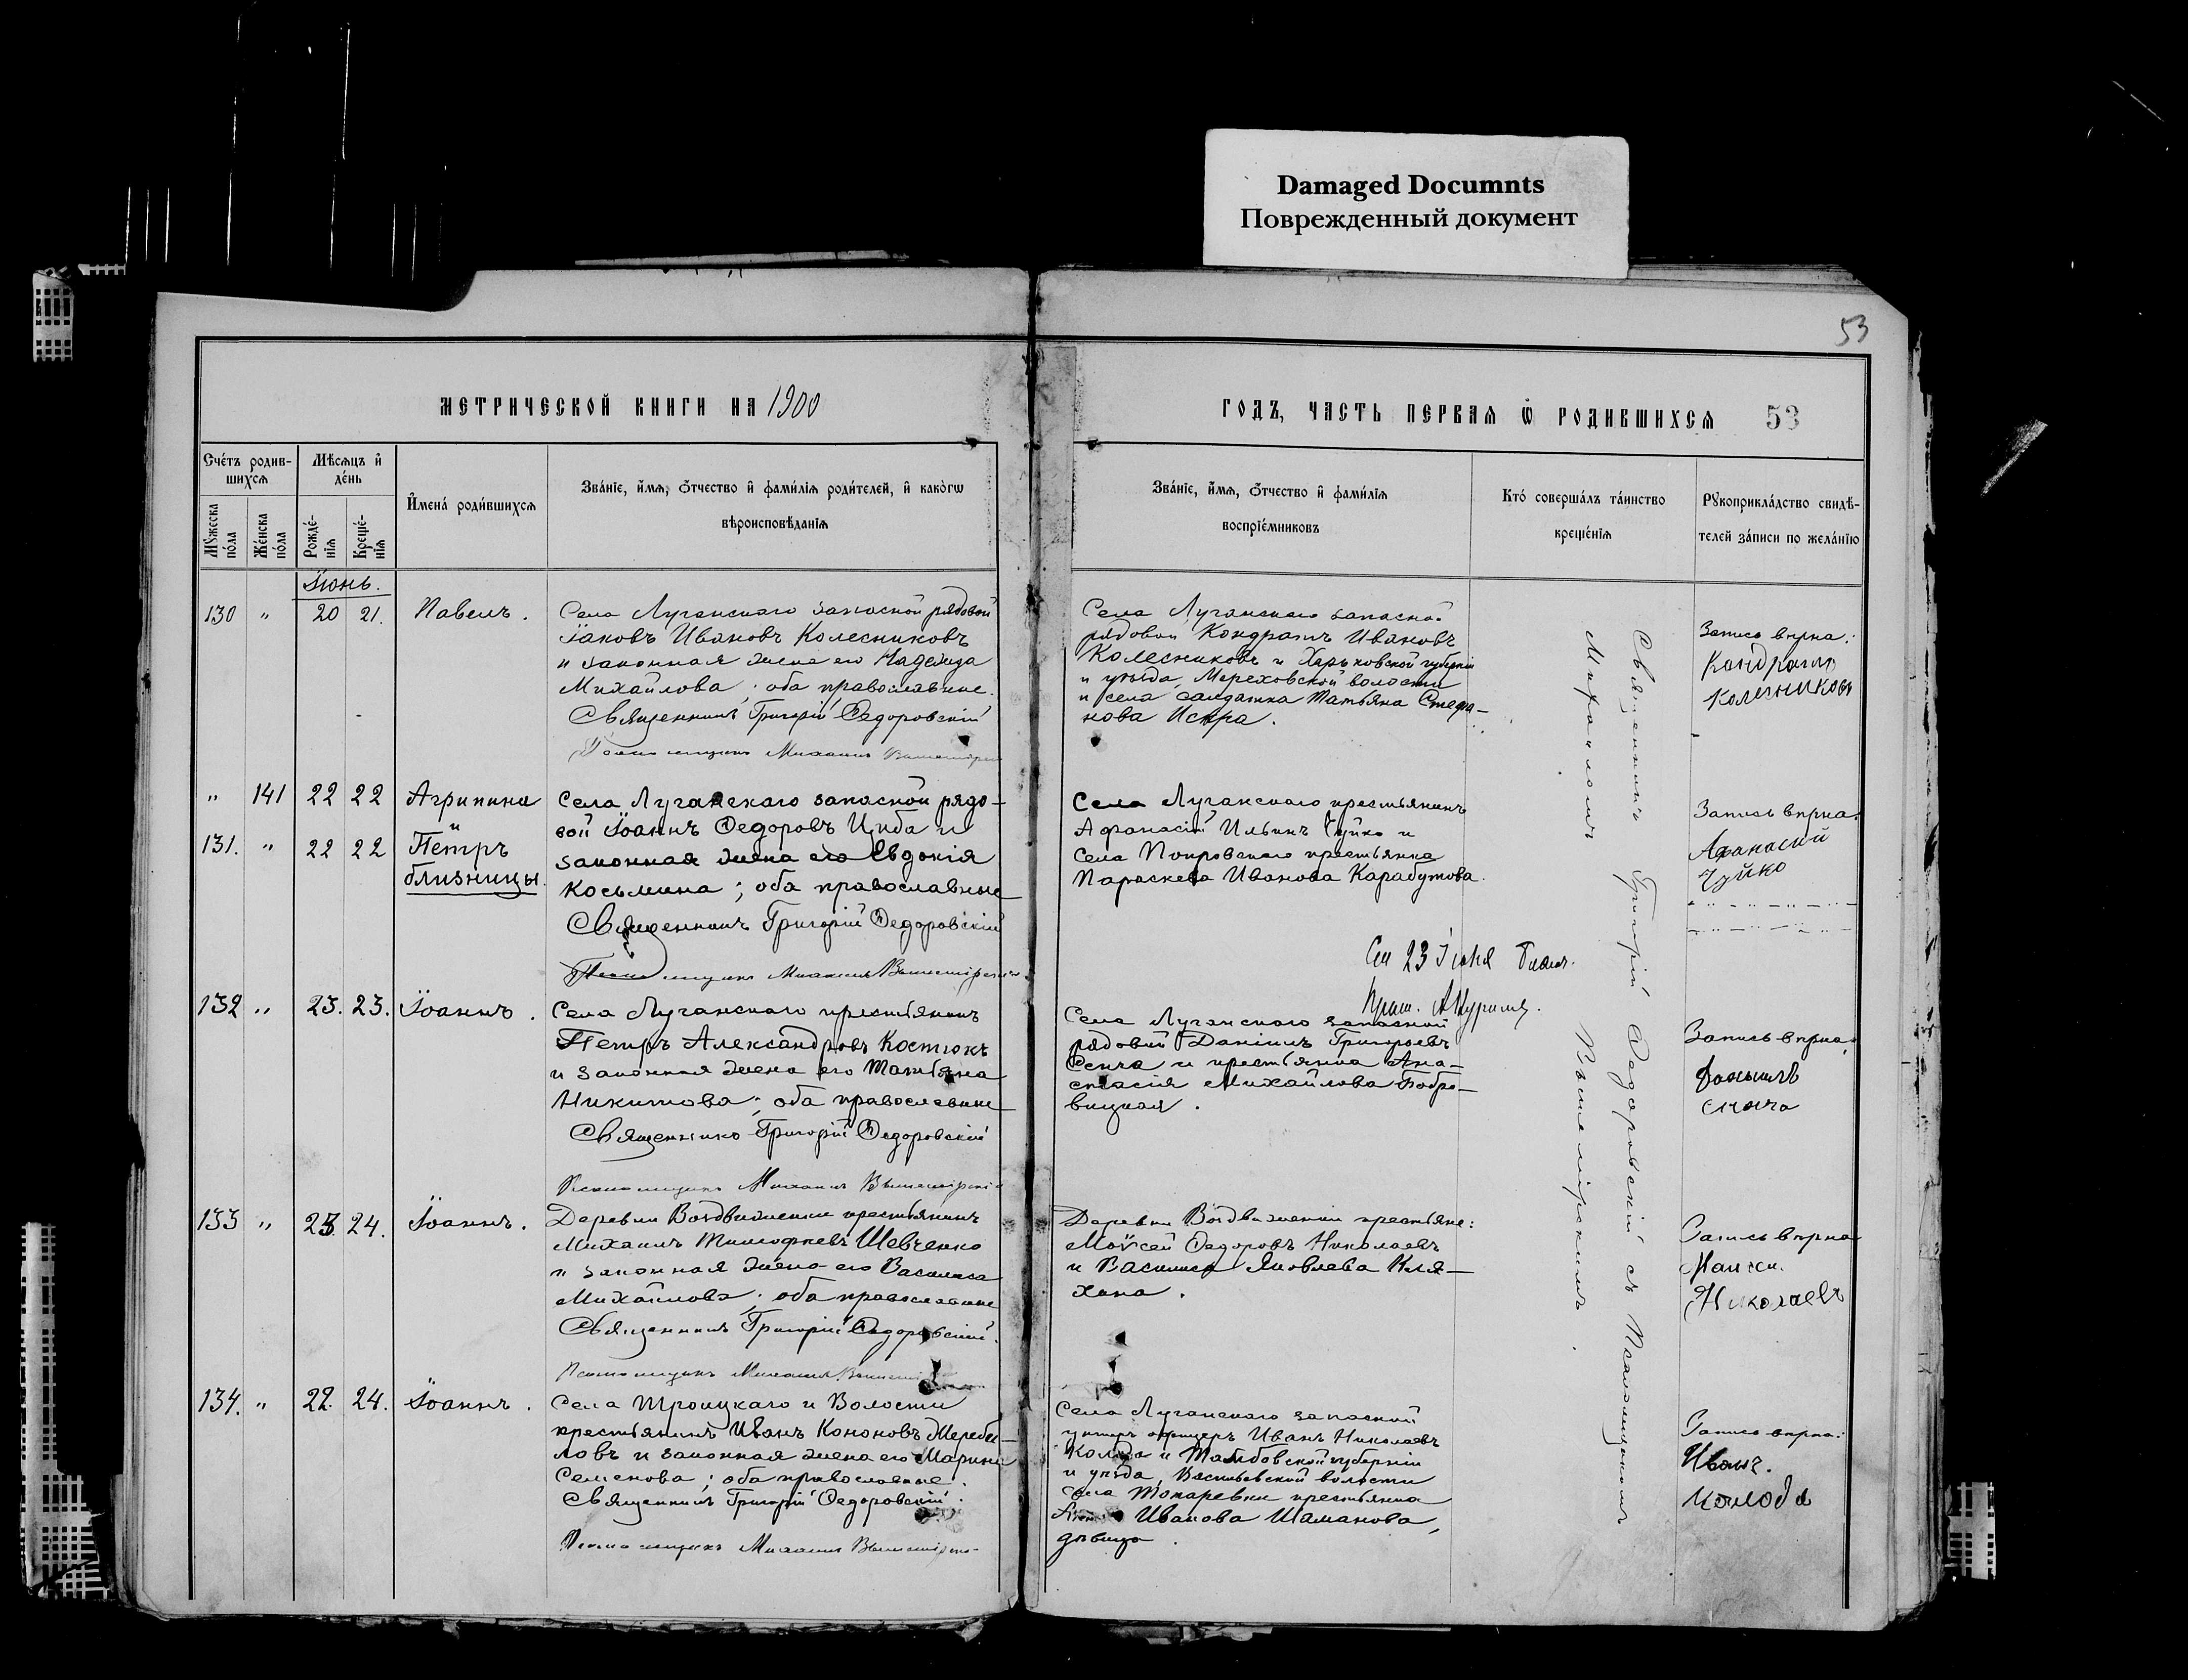 Damaged Documnts
Поврежденный документ
53
МЕТРИЧЕСКОЙ КНИГИ НА 1900
ГОДЪ, ЧАСТЬ ПЕРВАЯ Ѿ РОДИВШИХСЯ 53
Счéтъ родив-
шихся
Мѣсяцъ и
дéнь
Мужеска
пóла
Жéнска
пóла
Рождé-
нія
Крещé-
нія
Именá родившихся
Звáніе, имя, Отчество и фамилія родителей, и какóгѡ
вѣроисповѣданія
Звáніе, имя, Отчество и фамилія
воспріéмниковъ
Ктó совершáлъ тáинство
крещéнія
Рукоприклáдство свидѣ-
телей зáписи по желáнію
Іюнь.
130 " 20 21. Павелъ.
Села Луганскаго запасной рядовой
Іаковъ Ивановъ Колесниковъ
и законная жена его Надежда
Михайлова; оба православные.
Священникъ Григорій Федоровскій
Псаломщикъ Михаилъ
Села Луганскаго запасной
рядовой Кондратъ Ивановъ
Колесниковъ и Харьковской губерніи
и уѣзда, Мереховской волости
и села солдатка Татьяна Стефа-
нова Искра.
Запись вѣрна:
Кондратъ
Колесниковъ
" 141 22 22 Агрипина
и
131. " 22 22 Петръ
близнецы.
Села Луганскаго запасной рядо-
вой Іоаннъ Федоровъ Цыба и
законная жена его Евдокія
Косьмина; оба православные
Священникъ Григорій Федоровскій
Псаломщикъ Михаилъ
Села Луганскаго крестьянинъ
Афанасій Ильинъ Чуйко и
села Покровскаго крестьянка
Параскева Иванова Карабутова.
Запись вѣрна:
Афанасий
Чуйко
23 Іюня
132 " 23. 23. Іоаннъ.
Села Луганскаго крестьянинъ
Петръ Александровъ Костюкъ
и законная жена его Татьяна
Никитова; оба православные
Священникъ Григорій Федоровскій
Псаломщикъ Михаилъ
Села Луганскаго запасной
рядовой Даніилъ Григорьевъ
и крестьянка Ана-
стасія Михайлова Бобро-
вицкая.
Запись вѣрна:
133 " 23. 24. Іоаннъ.
Деревни Воздвиженки крестьянинъ
Михаилъ Тимофеевъ Шевченко
и законная жена его Василиса
Михайлова; оба православные
Священникъ Григорій Федоровскій.
Псаломщикъ Михаилъ
Деревни Воздвиженки крестьяне:
Моѵсей Федоровъ Николаевъ
и Василиса Яковлева Кля-
хина.
Запись вѣрна
Николаевъ
134. " 22. 24. Іоаннъ.
Села Троицкаго и Волости
крестьянинъ Иванъ Кононовъ Жереби-
ловъ и законная жена его Марина
Семенова; оба православные.
Священникъ Григорій Федоровскій.
Псаломщикъ Михаилъ
Села Луганскаго запасной
унтеръ офицеръ Иванъ Николаевъ
Колода и Тамбовской губерніи
и уѣзда, Васильевской волости
села Токаревки крестьянка
Иванова Шаманова,
дѣвица.
Запись вѣрна:
Иванъ.
Колода
Священникъ Григорій Федоровскій съ Псаломщикомъ
Михаиломъ Вышемірскимъ.